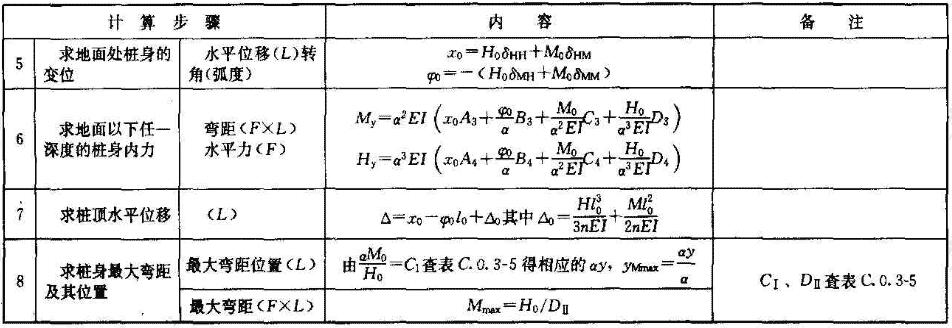 计 算 步 骤 内 容 备 注
5 求地面处桩身的变位 水平位移(L)转角(弧度) x₀=H₀δ_HH+M₀δ_HM
φ₀=-(H₀δ_MH+M₀δ_MM)
6 求地面以下任一深度的桩身内力 弯距(F×L)
水平力(F) M_y=α²EI(x₀A₃+φ₀/α B₃+M₀/(α²EI) C₃+H₀/(α³EI) D₃)
H_y=α³EI(x₀A₄+φ₀/α B₄+M₀/(α²EI) C₄+H₀/(α³EI) D₄)
7 求桩顶水平位移 (L) Δ=x₀-φ₀l₀+Δ₀其中Δ₀=Hl₀³/(3nEI)+Ml₀²/(2nEI)
8 求桩身最大弯距及其位置 最大弯距位置(L) 由αM₀/H₀=C_I查表C.0.3-5得相应的αy,y_Mmax=αy/α C_I、D_II查表C.0.3-5
最大弯距(F×L) M_max=H₀/D_II